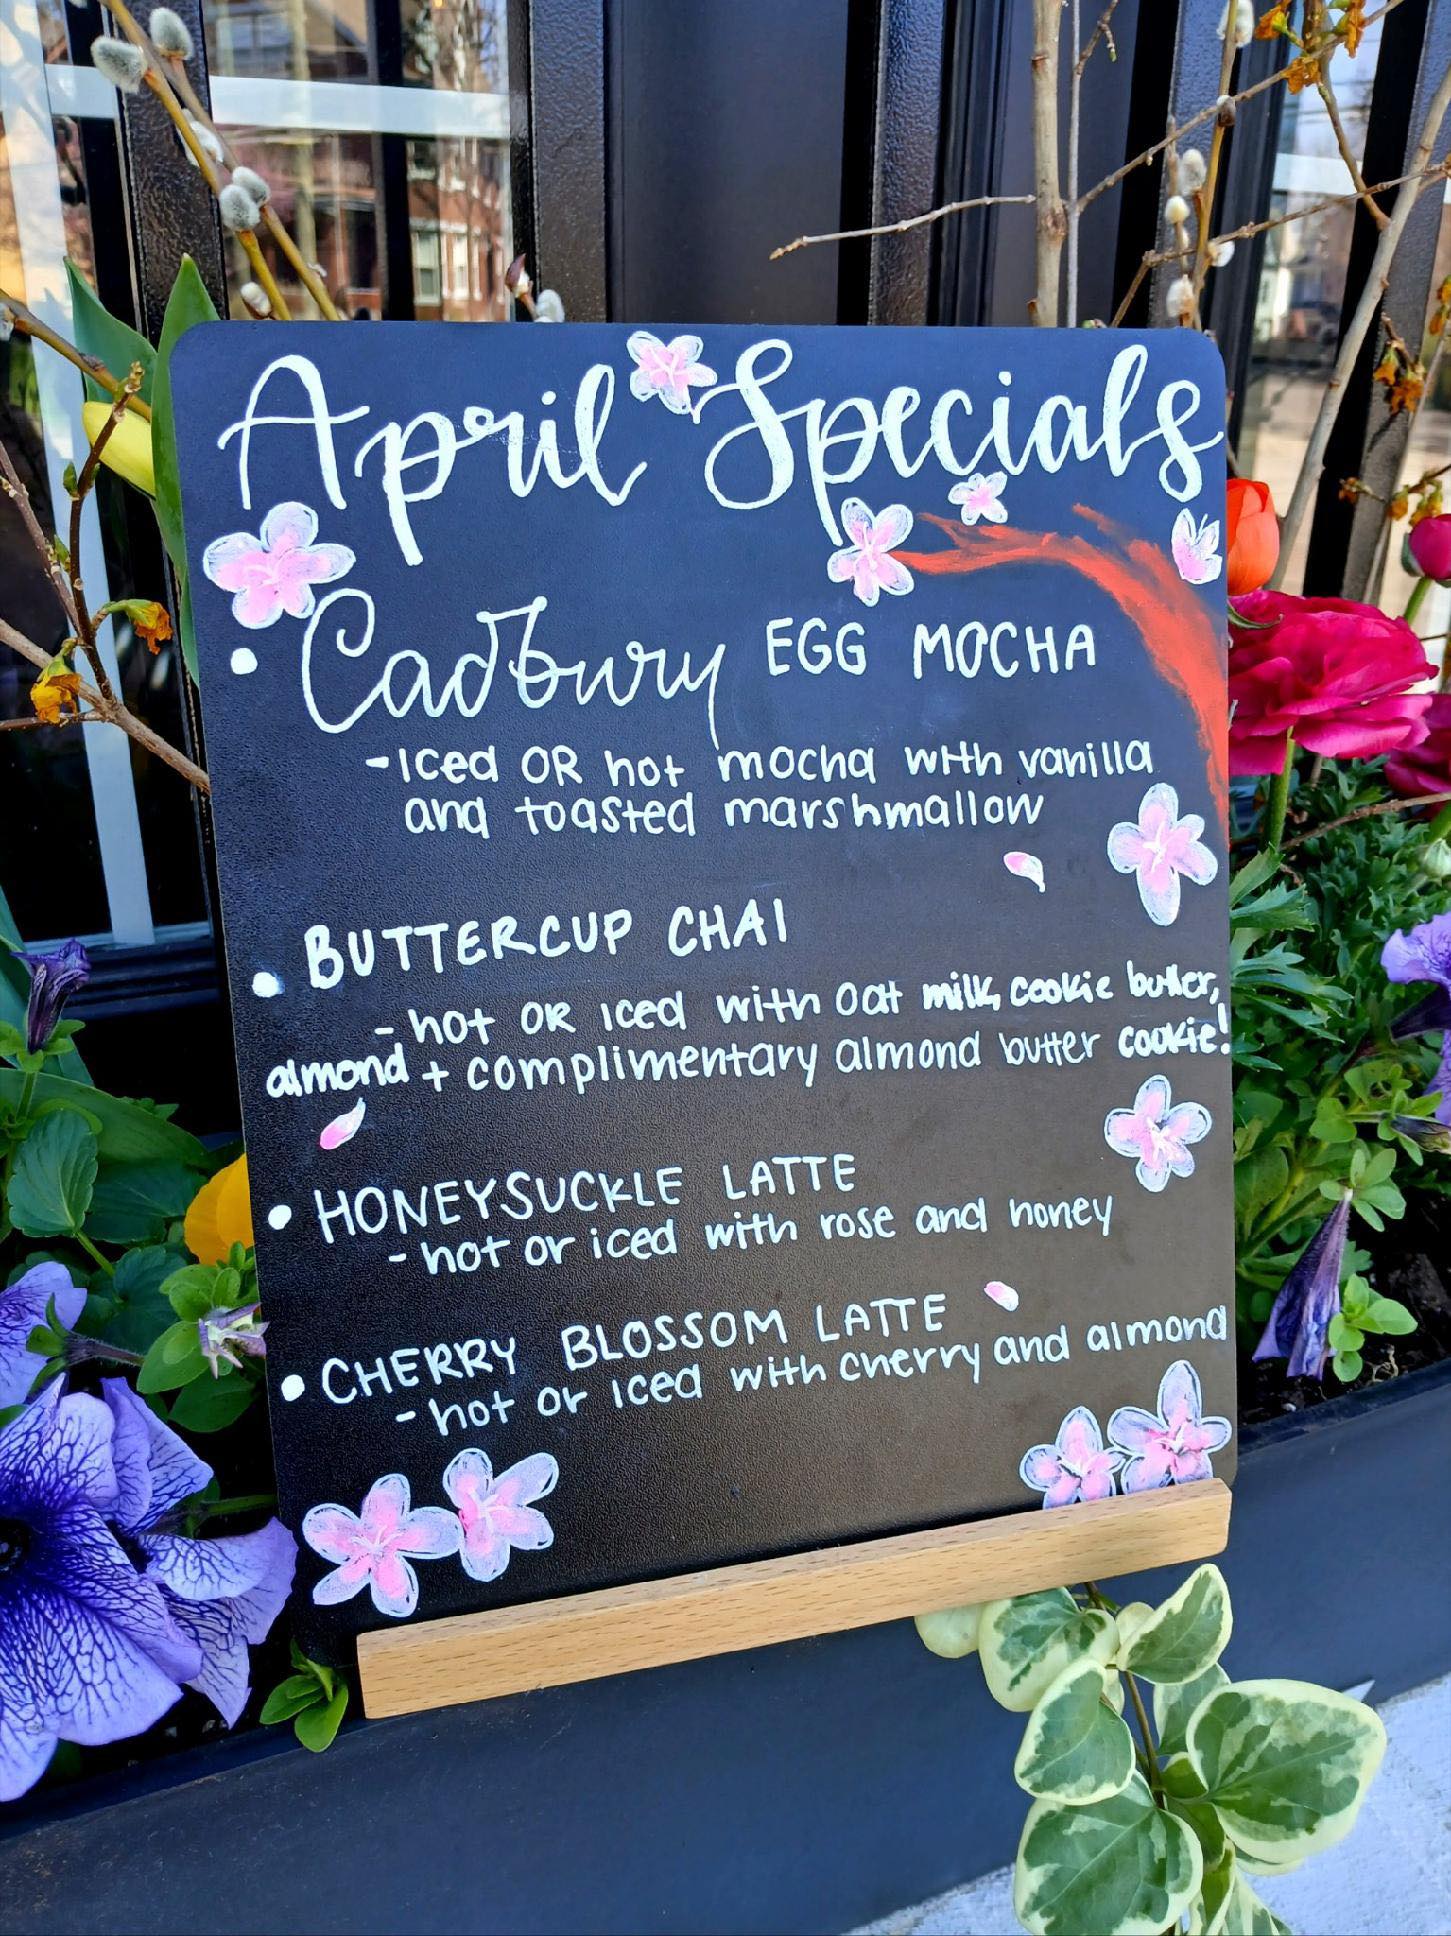 April Specials
• Cadbury EGG MOCHA
- Iced OR hot mocha with vanilla
and toasted marshmallow
• BUTTERCUP CHAI
- hot OR iced with oat milk, cookie butter,
almond + complimentary almond butter cookie!
• HONEYSUCKLE LATTE
- hot or iced with rose and honey
• CHERRY BLOSSOM LATTE
- hot or iced with cherry and almond